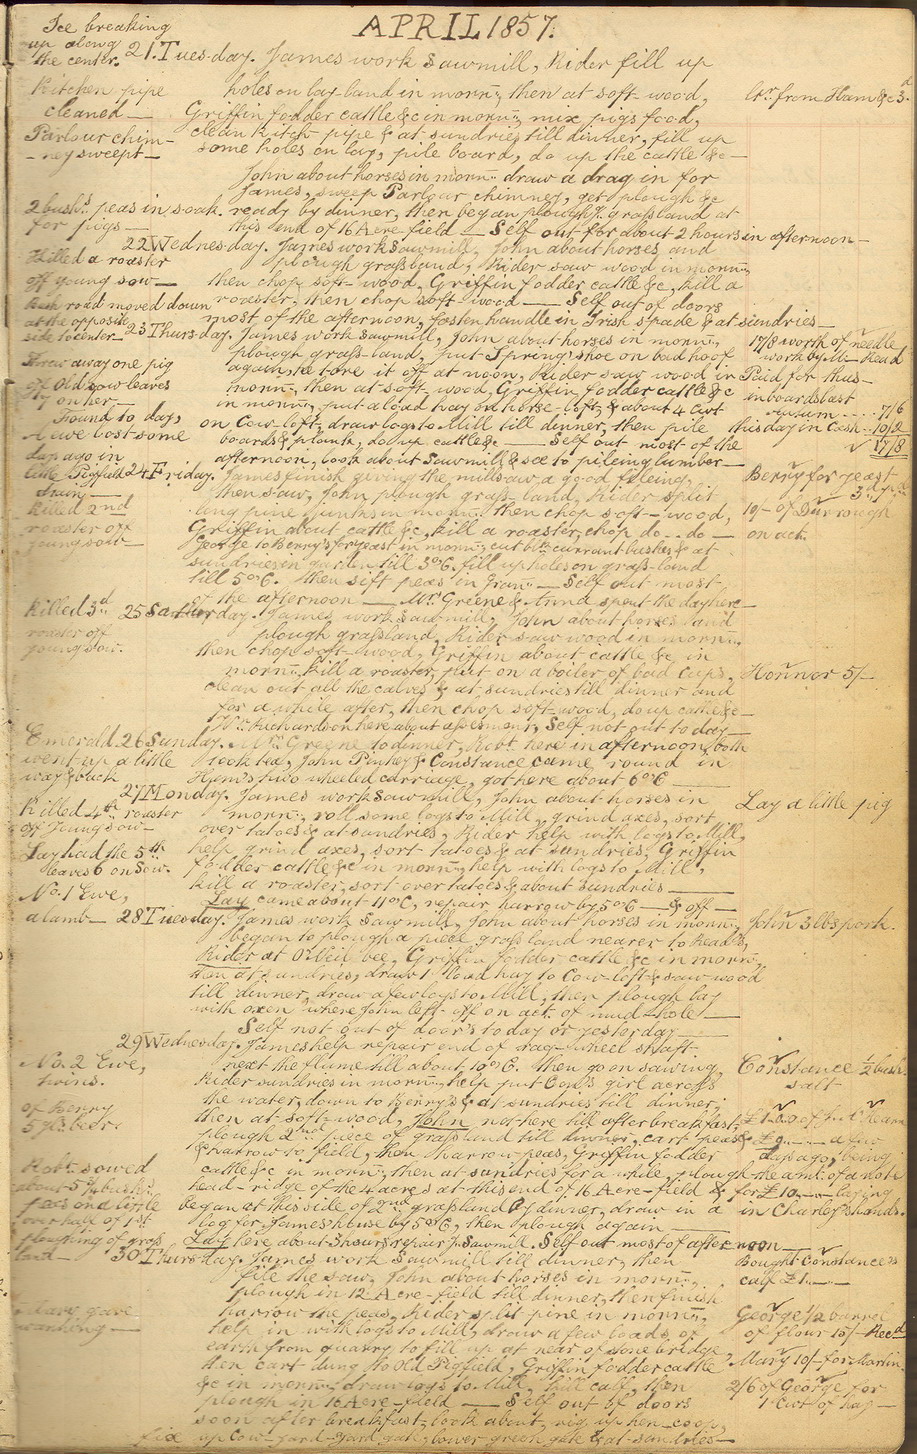 APRIL 1857.
Ice breaking
up along
the center.
21. Tuesday. James work Sawmill, Rider fill up
Kitchen pipe
cleaned —
holes on lay-land in mornng, then at soft-wood,
Griffin fodder cattle &c in mornng, mix pigs food,
Parlour chim-
-ney sweept —
clean Kitch pipe & at sundries till dinner, fill up
some holes on lay, pile board, do up the cattle &c —
John about horses in mornng draw a drag in for
James, sweep Parlour chimney, get plough &c
2 bushs. peas in soak
for pigs —
ready by dinner, then began plough'g grassland at
this end of 16 Acre field — Self out for about 2 hours in afternoon —
22 Wednesday. James work Sawmill, John about horses and
Killed a roaster
off young sow —
plough grassland, Rider saw wood in mornng,
then chop soft-wood, Griffin fodder cattle &c, kill a
roaster, then chop soft wood — Self out of doors
road moved down
at the opposite
side to center —
most of the afternoon, fasten handle in Irish spade & at sundries —
23 Thursday. James work Sawmill, John about horses in mornng,
plough grass-land, put Spring's shoe on bad hoof
again, he tore it off at noon, Rider saw wood in
away one pig
off Old sow leaves
on her —
mornng, then at soft-wood, Griffin fodder cattle &c
in mornng, put a load hay on horse-loft, & about 4 cwt
Found to day,
lost some
days ago in
little Pigfield
drain —
on Cow-loft, draw logs to Mill till dinner, then pile
boards & plank, do up cattle &c — Self out most of the
afternoon, look about Sawmill & see to pileing lumber —
17/8 worth of needle
work by M. Read
Paid for thus —
in boards last
autum .... 7/6
this day in cash .. 10/2
17/8
24 Friday. James finish giving the mill saw a good fileing,
then saw, John plough grass-land, Rider split
Killed 2nd
roaster off
young sow —
long pine junks in mornng then chop soft-wood,
Griffin about cattle &c, kill a roaster, chop do — do —
George to Berry's for yeast in mornng, cut blk currant bushes & at
sundries in garden till 3 o'C. fill up holes on grass-land
till 5 o'C. then sift peas in — Self out most
of the afternoon — Mrs Greene & Anna spent the day here —
Berry for yeast
10/- of Durrough
on act.
Killed 3d
roaster off
young sow.
25 Satturday. James work Sawmill, John about horses and
plough grassland, Rider saw wood in mornng,
then chop soft-wood, Griffin about cattle &c in
mornng, kill a roaster, put on a boiler of bad cups,
clean out all the calves & at sundries till dinner and
for a while after, then chop soft-wood, do up cattle &c —
Mr Richardson here about assessment, Self not out to day —
Honnor 5/-
Emerald
went up a little
way & back
26 Sunday. Mrs Greene to dinner, Robt. here in afternoon, both
took tea, John & Constance came round in
Ham's two wheeled carriage, got here about 6 o'C —
27 Monday. James work Sawmill, John about horses in
Killed 4th roaster
off young sow —
mornng, roll some logs to Mill, grind axes, sort
over tatoes & at sundries, Rider help with logs to Mill,
Lay had the 5th
leaves 6 on sow.
help grind axes, sort tatoes & at sundries, Griffin
fodder cattle &c in mornng, help with logs to Mill,
kill a roaster, sort over tatoes & about sundries —
Lay came about 11 o'C, repair harrow by 5 o'C — & off —
Lay a little pig
No. 1 Ewe,
a lamb —
28 Tuesday. James work Sawmill, John about horses in mornng,
began to plough a piece grass land nearer to Read's,
Rider at O'Neil bee, Griffin fodder cattle &c in mornng,
then at sundries, draw 1 load hay to Cow-loft & saw wood
till dinner, draw a few logs to Mill, then plough lay
with oxen where John left off on act. of mud-hole —
Self not out of doors to day or yesterday —
John 3 lbs pork.
29 Wednesday. James help repair end of rag-wheel shaft
No. 2 Ewe,
twins.
next the flume till about 10 o'C. then go on sawing,
Rider sundries in mornng, help put girl across
of Berry
5 gls. beer.
the water, down to Berry's & at sundries till dinner,
then at soft-wood, John not here till after breakfast,
plough 2nd piece of grassland till dinner, cart peas
& harrow to field, then harrow peas, Griffin fodder
Robt. sowed
about 5 1/4 bush.
peas on a little
over half of 1st
ploughing of grass
land —
cattle &c in mornng, then at sundries for a while, plough
head-ridge of the 4 acres at this end of 16 Acre-field &
began at this side of 2nd grassland by dinner, draw in a
log for James's house by 5 o'C, then plough again —
Lay here about 3 hours repair'g Sawmill. Self out most of afternoon —
Constance 1/2 bush.
salt
a few
days ago, being
the amt. of a note
for £10 — laying
in Charley's hands.
30 Thursday. James work Sawmill till dinner, then
file the saw, John about horses in mornng,
plough in 12 Acre-field till dinner, then finish
Mary gave
warning —
harrow the peas, Rider split pine in mornng,
help in with logs to Mill, draw a few loads of
earth from quarry to fill up at near of stone bridge,
then cart dung to Old Pigfield, Griffin fodder cattle
&c in mornng, draw logs to Mill, kill calf, then
plough in 16 Acre-field — Self out of doors
soon after breakfast, look about, rig up hen-coop,
fix up Cow-yard-yard gate, lower green gate & at sundries —
Bought Constance's
calf £1 —
George 1/2 barrel
of flour 15/- Recd
Mary 10/- for Martin
2/6 of George for
1 Cwt of hay —